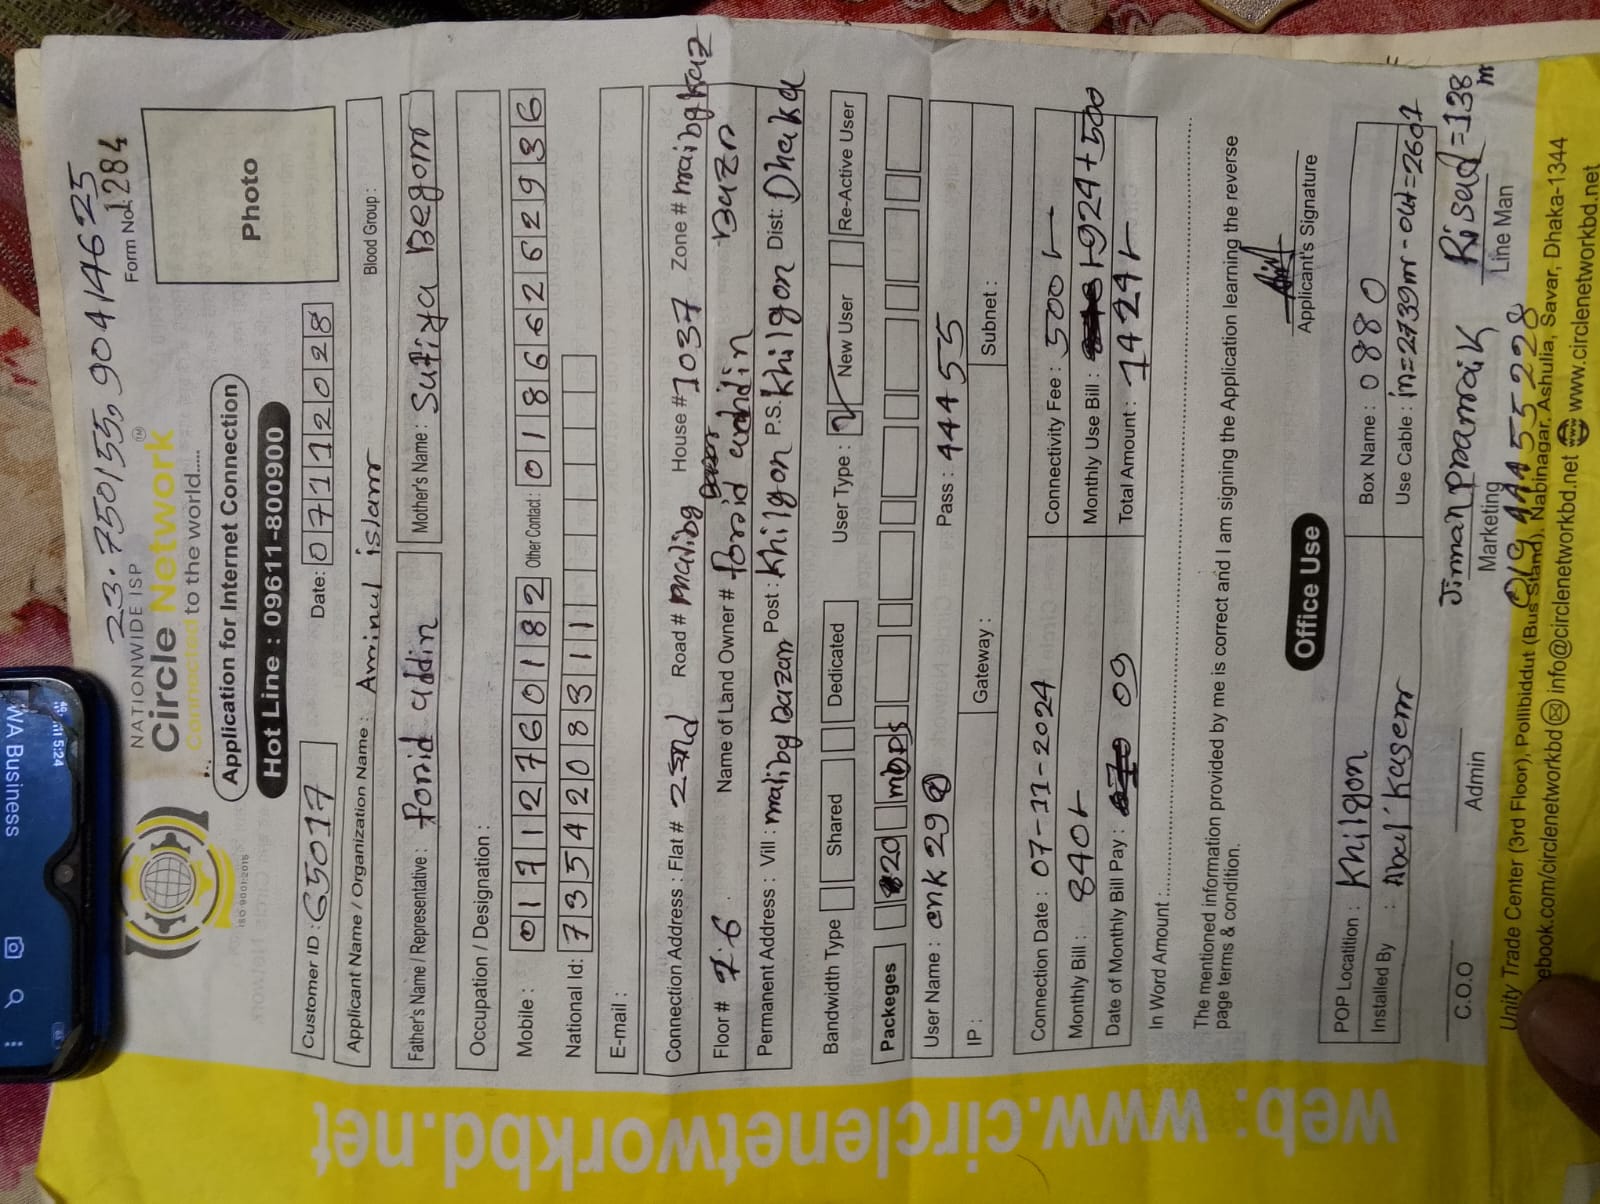 23.750155, 90.414625
NATIONWIDE ISP
Form No: 1284
Circle Network™
Connected to the world.....
ISO 9001:2015
Application for Internet Connection
Photo
Hot Line : 09611-800900
Customer ID : 65017
Date: 07112028
Applicant Name / Organization Name : Aminul islam
Blood Group :
Father's Name / Representative : forid uddin
Mother's Name : Sufiya Begom
Occupation / Designation :
Mobile : 01712760182 Other Contact: 01866262936
National Id: 7354208311
E-mail :
Connection Address : Flat # 2nd Road # malibg House # 1037 Zone # maibgbaz
Floor # 7.6 Name of Land Owner # forid uddin Bazn
Permanent Address : Vill : malibg Bazan Post : Khilgon P.S. Khilgon Dist: Dhaka
Bandwidth Type Shared Dedicated User Type : New User Re-Active User
Packeges 20 mbps
User Name : cnk 29 Pass : 44455
IP : Gateway : Subnet :
Connection Date : 07-11-2024 Connectivity Fee : 500/-
Monthly Bill : 840/- Monthly Use Bill : 924+500
Date of Monthly Bill Pay : 09 Total Amount : 1424/-
In Word Amount :
The mentioned information provided by me is correct and I am signing the Application learning the reverse
page terms & condition.
Applicant's Signature
Office Use
POP Locatition : Khilgon Box Name : 0880
Installed By : Abul Kasem Use Cable : in=2739m - out=2601
Jiman Pramaik Risad =138 m
C.O.O Admin Marketing Line Man
01944455228
Unity Trade Center (3rd Floor), Pollibiddut (Bus Stand), Nabinagar, Ashulia, Savar, Dhaka-1344
ebook.com/circlenetworkbd info@circlenetworkbd.net www.circlenetworkbd.net
web: www.circlenetworkbd.net
5:24
WA Business